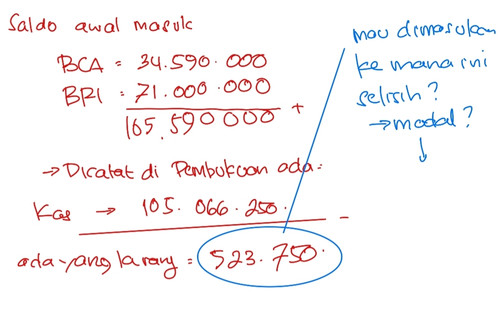 Saldo awal masuk
BCA = 34.590.000
BRI = 71.000.000
+
105.590000
→ Dicatat di Pembukuan ada:
Kas → 105.066.250.
-
ada yang larang = 523.750.
mau dimasukan
ke mana ini
selisih?
→ modal?
↓